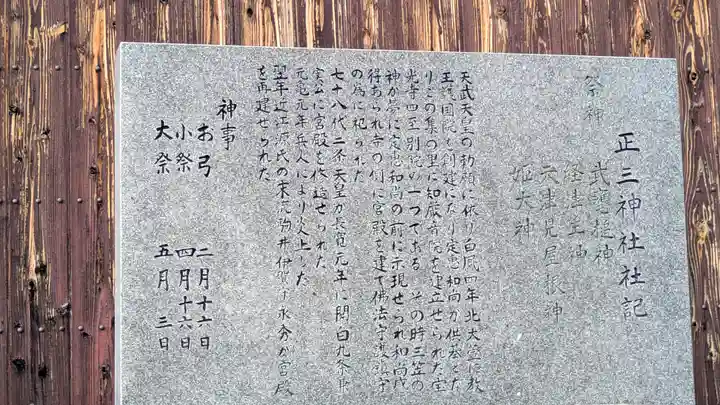 正三神社社記
祭神
武甕槌神
経津主神
天津児屋根神
姫大神
天武天皇の勅願に依り白鳳四年北大萱に教
王護国院を創建になり定恵和尚が供養をた
りこの集の里に知厳寺院を建立せられた宝
光寺四至別院の一つである その時三笠の
神が夢に定恵和尚の前に示現せられ和尚感
得あられ寺の側に宮殿を建て佛法守護鎮守
の為に祀られた
七十八代二条天皇が長寛元年に関白九条兼
実公に宮殿を修造せられた
元亀元年兵火により炎上した
翌年近江源氏の末流駒井伊賀守永秀が宮殿
を再建せられた
神事
お弓 二月十六日
小祭 四月十六日
大祭 五月 三日